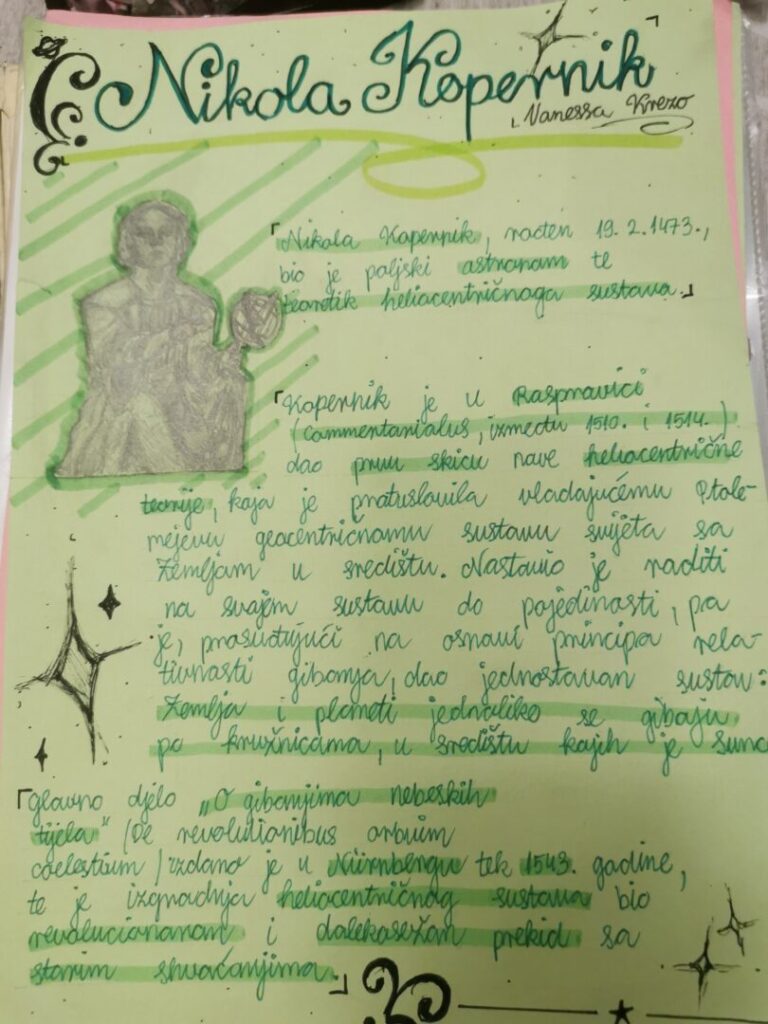 Nikola Kopernik
Vanessa Krezo
Nikola Kopernik, rođen 19. 2. 1473.,
bio je poljski astronom te
teoretik heliocentričnoga sustava.
Kopernik je u Raspravici
(Commentariolus, između 1510. i 1514.)
dao prvu skicu nove heliocentrične
teorije, koja je protuslovila vladajućemu Ptole-
mejevu geocentričnomu sustavu svijeta sa
Zemljom u središtu. Nastavio je raditi
na svojem sustavu do pojedinosti, pa
je, prosuđujući na osnovi principa rela-
tivnosti gibanja, dao jednostavan sustav:
Zemlja i planeti jednoliko se gibaju
po kružnicama, u središtu kojih je Sunc
glavno djelo „O gibanjima nebeskih
tijela" (De revolutionibus orbium
coelestium) izdano je u Nürnbergu tek 1543. godine,
te je izgradnja heliocentričnog sustava bio
revolucionaran i dalekosežan prekid sa
starim shvaćanjima.